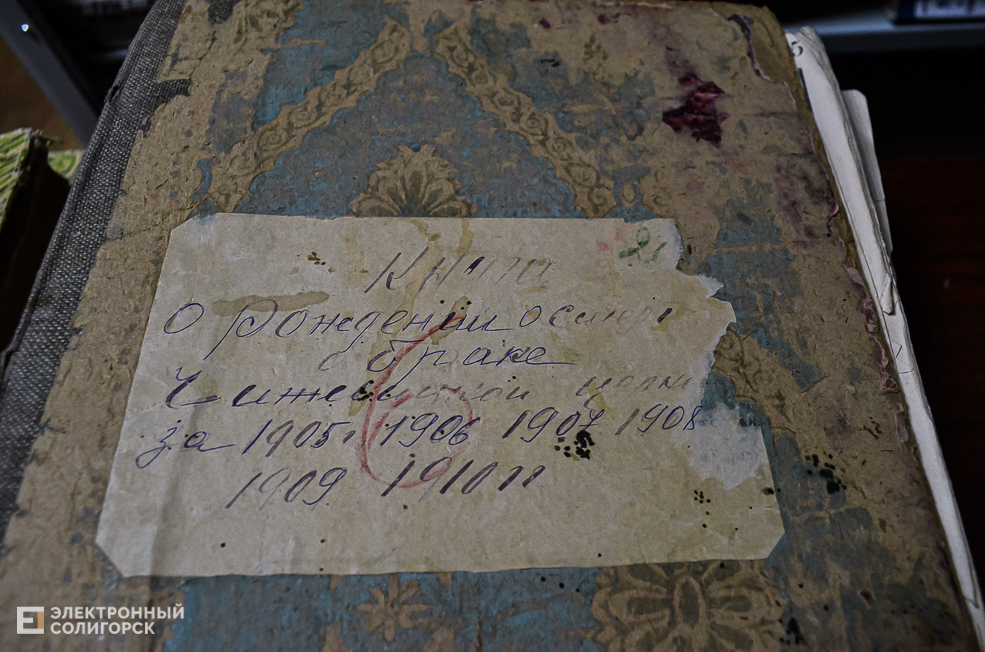 Книга
О Рождении о смерт
о браке
Чижевицкой церкви
за 1905г 1906 1907 1908
1909 1910 11
21
6
ЭЛЕКТРОННЫЙ
СОЛИГОРСК